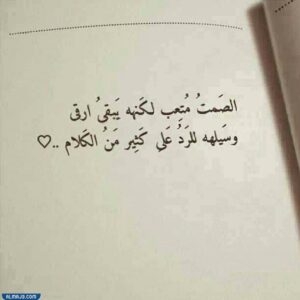 الصَمتُ مُتعِب لكَنهه يَبقىُ ارقى
وسَيلهه للرَدُ عَلىِ كَثِير مَنُ الكَلام ..♡
ALMAJS.com